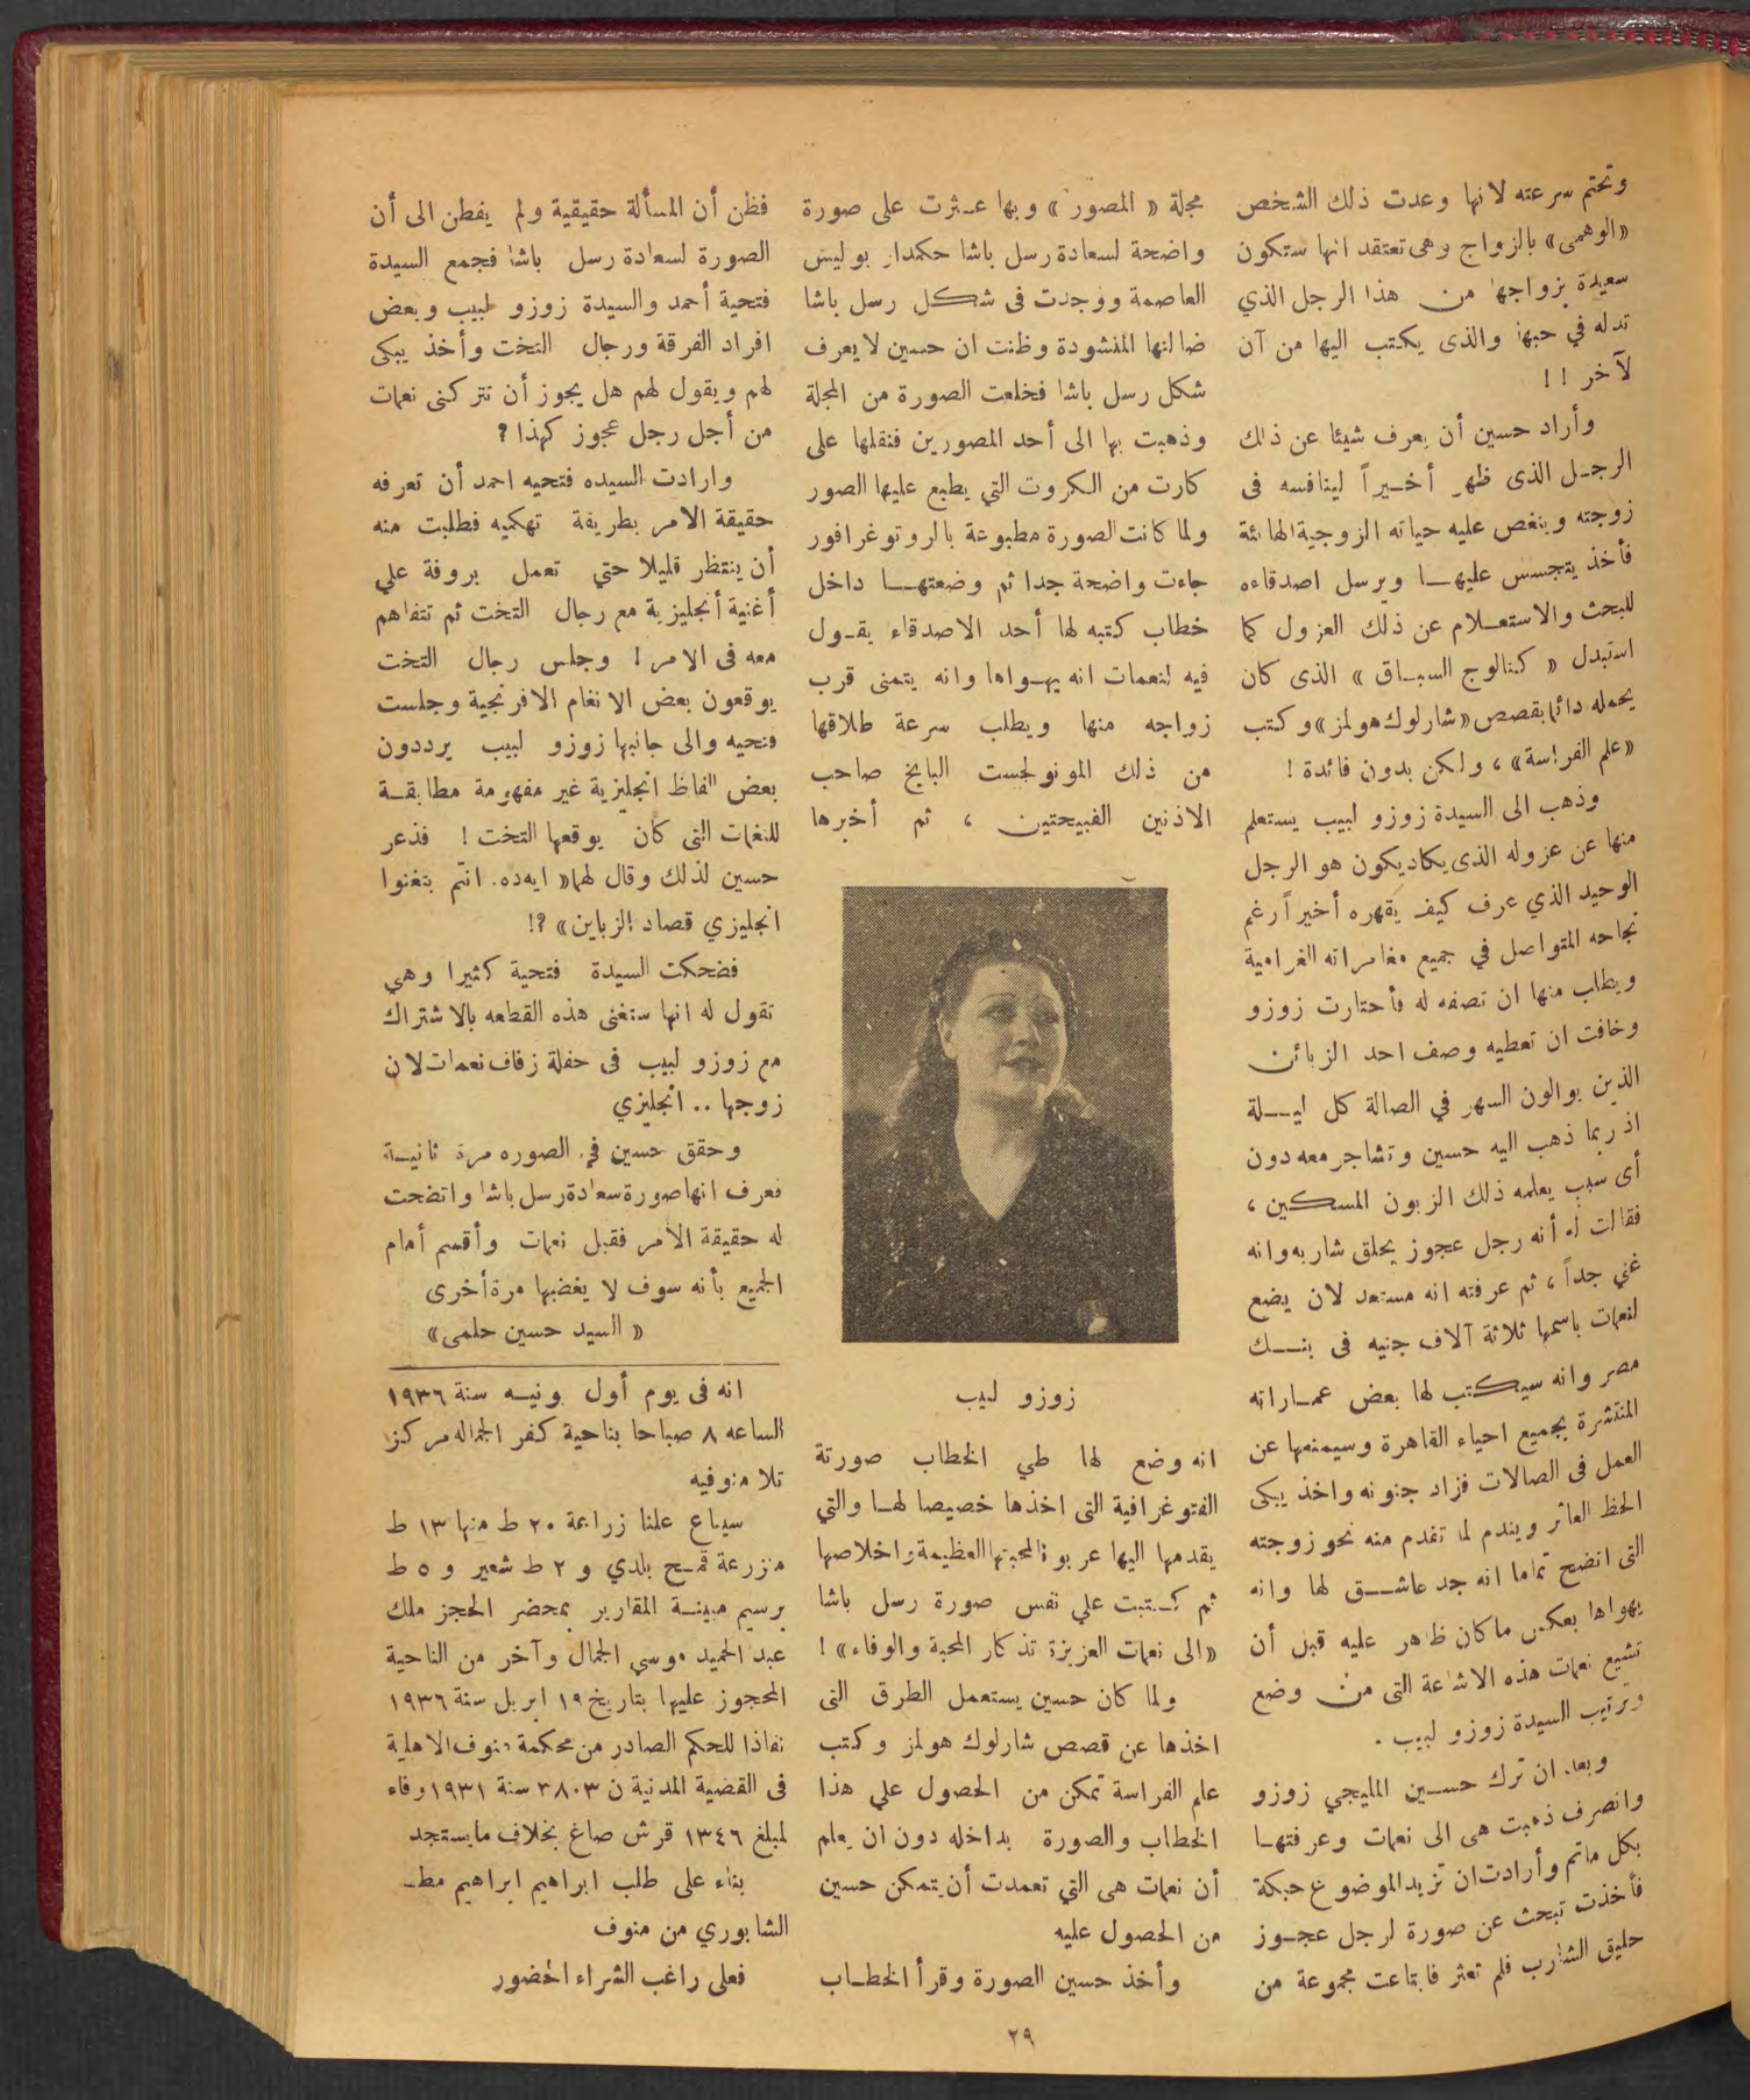 وتحتم سرعته لانها وعدت ذلك الشخص
«الوهمى» بالزواج وهى تعتقد انها ستكون
سعيدة بزواجها من هذا الرجل الذي
تدله في حبها والذى يكتب اليها من آن
لآخر ! !
وأراد حسين أن يعرف شيئا عن ذلك
الرجل الذى ظهر أخيراً لينافسه فى
زوجته وينغص عليه حياته الزوجية الهائئة
فأخذ يتجسس عليها ويرسل اصدقاءه
للبحث والاستعلام عن ذلك العزول كما
استبدل « كتالوج السباق » الذى كان
يحمله دائما بقصص «شارلوك هولمز» وكتب
«علم الفراسة» ، ولكن بدون فائدة !
وذهب الى السيدة زوزو لبيب يستعلم
منها عن عزوله الذى يكاد يكون هو الرجل
الوحيد الذي عرف كيف يقهره أخيراً رغم
نجاحه المتواصل في جميع مغامراته الغرامية
ويطلب منها ان تصفه له فأحتارت زوزو
وخافت ان تعطيه وصف احد الزبائن
الذين يوالون السهر في الصالة كل ليلة
اذ ربما ذهب اليه حسين وتشاجر معه دون
أى سبب يعلمه ذلك الزبون المسكين ،
فقالت له أنه رجل عجوز يحلق شاربه وانه
غني جداً ، ثم عرفته انه مستعد لان يضع
لنعمات باسمها ثلاثة آلاف جنيه فى بنك
مصر وانه سيكتب لها بعض عماراته
المنتشرة بجميع احياء القاهرة وسيمنعها عن
العمل فى الصالات فزاد جنونه واخذ يبكى
الحظ العاثر ويندم لما تقدم منه نحو زوجته
التى اتضح تماما انه جد عاشق لها وانه
يهواها بعكس ماكان ظاهر عليه قبل أن
تشيع نعمات هذه الاشاعة التى من وضع
وترتيب السيدة زوزو لبيب .
وبعد ان ترك حسين المليجي زوزو
وانصرف ذهبت هى الى نعمات وعرفتها
بكل ماتم وأرادت ان تزيد الموضوع حبكة
فأخذت تبحث عن صورة لرجل عجوز
حليق الشارب فلم تعثر فابتاعت مجموعة من
مجلة « المصور » وبها عثرت على صورة
واضحة لسعادة رسل باشا حكمدار بوليس
العاصمة ووجدت فى شكل رسل باشا
ضالتها المنشودة وظنت ان حسين لا يعرف
شكل رسل باشا فخلعت الصورة من المجلة
وذهبت بها الى أحد المصورين فنقلها على
كارت من الكروت التي يطبع عليها الصور
ولما كانت الصورة مطبوعة بالروتوغرافور
جاءت واضحة جدا ثم وضعتها داخل
خطاب كتبه لها أحد الاصدقاء يقول
فيه لنعمات انه يهواها وانه يتمنى قرب
زواجه منها ويطلب سرعة طلاقها
من ذلك المونولجست البايخ صاحب
الاذنين القبيحتين ، ثم أخبرها
زوزو لبيب
انه وضع لها طي الخطاب صورتة
الفتوغرافية التى اخذها خصيصا لها والتي
يقدمها اليها عربونا لمحبتها العظيمة واخلاصها
ثم كتبت علي نفس صورة رسل باشا
«الى نعمات العزيزة تذكار المحبة والوفاء» !
ولما كان حسين يستعمل الطرق التى
اخذها عن قصص شارلوك هولمز وكتب
علم الفراسة تمكن من الحصول علي هذا
الخطاب والصورة بداخله دون ان يعلم
أن نعمات هى التي تعمدت أن يتمكن حسين
من الحصول عليه
وأخذ حسين الصورة وقرأ الخطاب
فظن أن المسألة حقيقية ولم يفطن الى أن
الصورة لسعادة رسل باشا فجمع السيدة
فتحية أحمد والسيدة زوزو لبيب وبعض
افراد الفرقة ورجال التخت وأخذ يبكى
لهم ويقول لهم هل يجوز أن تتركنى نعمات
من أجل رجل عجوز كهذا ؟
وارادت السيده فتحيه احمد أن تعرفه
حقيقة الامر بطريقة تهكميه فطلبت منه
أن ينتظر قليلا حتي تعمل بروفة علي
أغنية أنجليزية مع رجال التخت ثم تتفاهم
معه فى الامر ! وجلس رجال التخت
يوقعون بعض الانغام الافرنجية وجلست
فتحيه والى جانبها زوزو لبيب يرددون
بعض الفاظ انجليزية غير مفهومة مطابقة
للنغمات التى كان يوقعها التخت ! فذعر
حسين لذلك وقال لهما« ايه ده. انتم بتغنوا
انجليزي قصاد الزباين» ؟!
فضحكت السيدة فتحية كثيرا وهي
تقول له انها ستغنى هذه القطعه بالاشتراك
مع زوزو لبيب فى حفلة زفاف نعمات لان
زوجها .. انجليزي
وحقق حسين في الصوره مرة ثانية
فعرف انها صورة سعادة رسل باشا واتضحت
له حقيقة الامر فقبل نعمات وأقسم أمام
الجميع بأنه سوف لا يغضبها مرة أخرى
« السيد حسين حلمى»
انه فى يوم أول يونيه سنة ١٩٣٦
الساعه ٨ صباحا بناحية كفر الجماله مركز
تلا منوفيه
سيباع علنا زراعة ٢٠ ط منها ١٣ ط
منزرعة قمح بلدي و ٢ ط شعير و ٥ ط
برسيم مبينة المقادير بمحضر الحجز ملك
عبد الحميد موسي الجمال وآخر من الناحية
المحجوز عليها بتاريخ ١٩ ابريل سنة ١٩٣٦
نفاذا للحكم الصادر من محكمة منوف الاهلية
فى القضية المدنية ن ٣٨٠٣ سنة ١٩٣١ وفاء
لمبلغ ١٣٤٦ قرش صاغ بخلاف مايستجد
بناء على طلب ابراهيم ابراهيم
الشابوري من منوف
فعلى راغب الشراء الحضور
٢٩